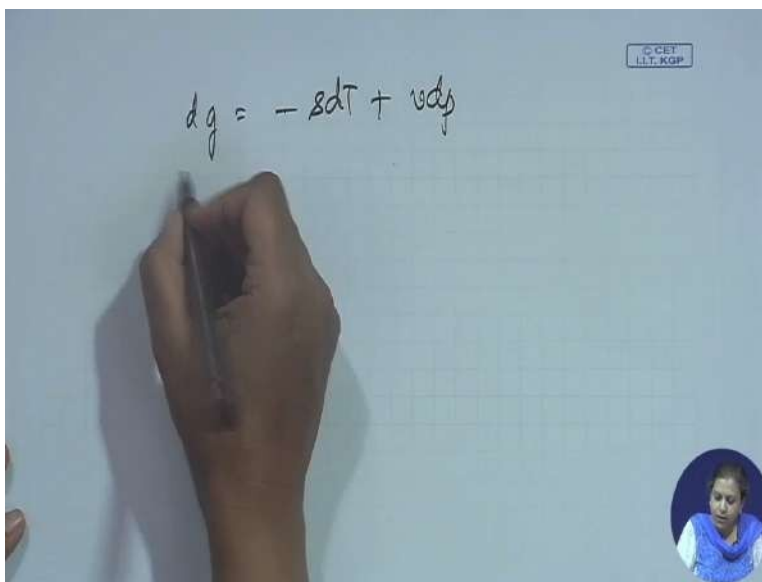 © CET
I.I.T. KGP
dg = - sdT + vdp